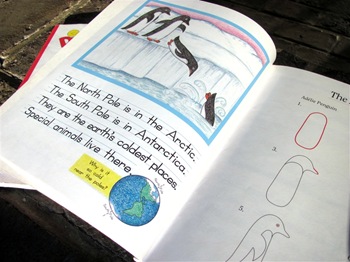 The North Pole is in the Arctic.
The South Pole is in Antarctica.
They are the earth's coldest places.
Special animals live there.
Why is it
so cold
near the poles?
The
Adélie Penguin
1.
3.
5.